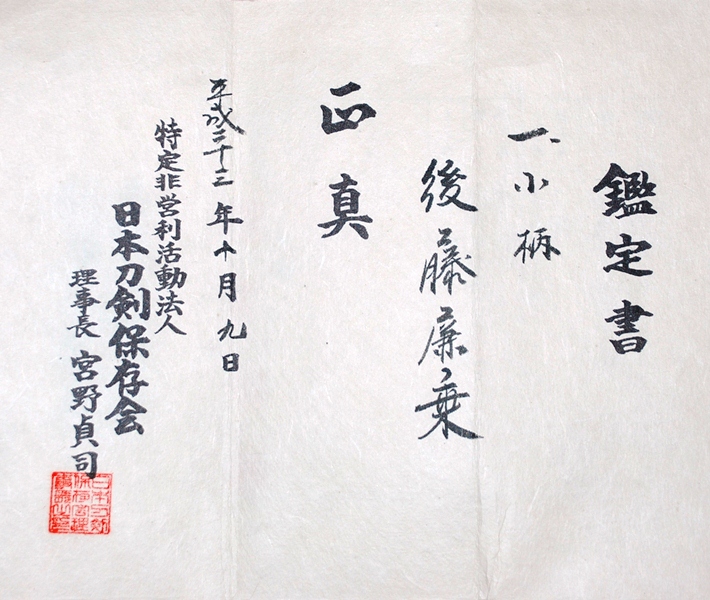 鑑定書
一、小柄
後藤廉乗
正真
平成二十三年十月九日
特定非営利活動法人
日本刀剣保存会
理事長 宮野貞司